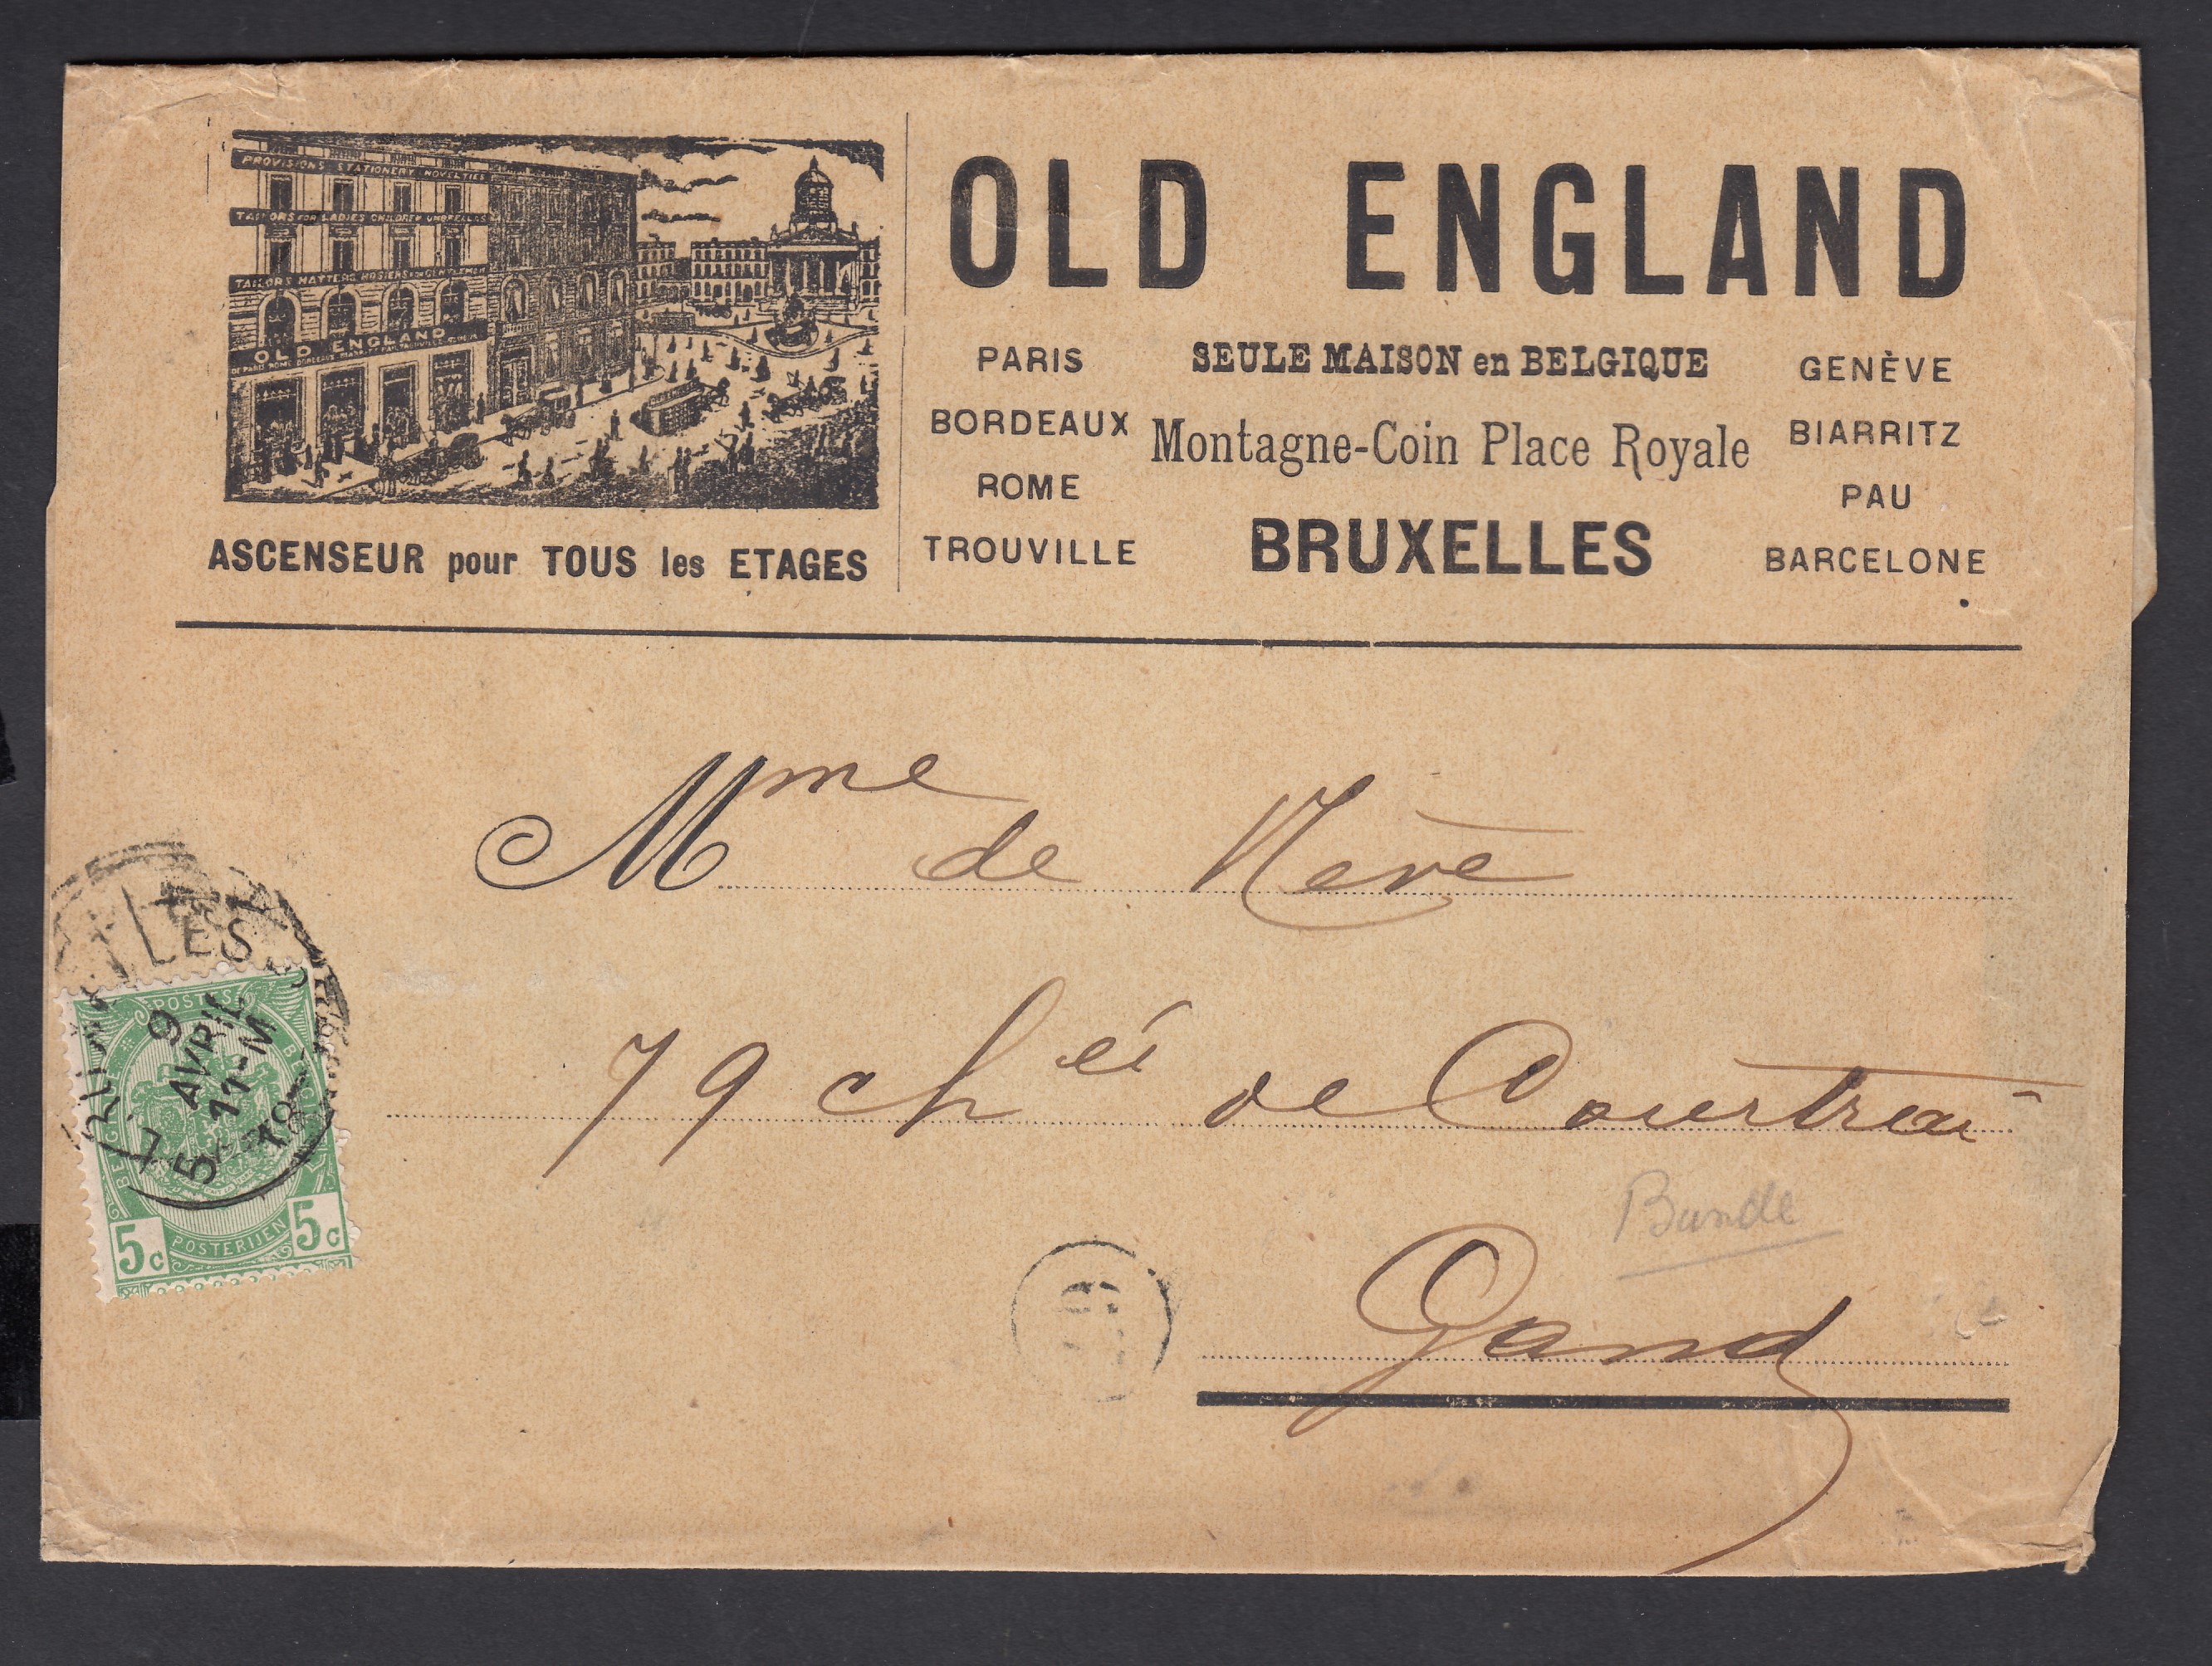 PROVISIONS STATIONERY NOVELTIES
TAILORS FOR LADIES CHILDREN UMBRELLAS
TAILORS HATTERS HOSIERS FOR GENTLEMEN
OLD ENGLAND
ASCENSEUR pour TOUS les ETAGES
OLD ENGLAND
PARIS
BORDEAUX
ROME
TROUVILLE
SEULE MAISON en BELGIQUE
Montagne-Coin Place Royale
BRUXELLES
GENÈVE
BIARRITZ
PAU
BARCELONE
Mme de Nève
79 chée de Courtrai
Gand
LES
9
AVRIL
11-M
POSTES
BELGIQUE
5c POSTERIJEN 5c